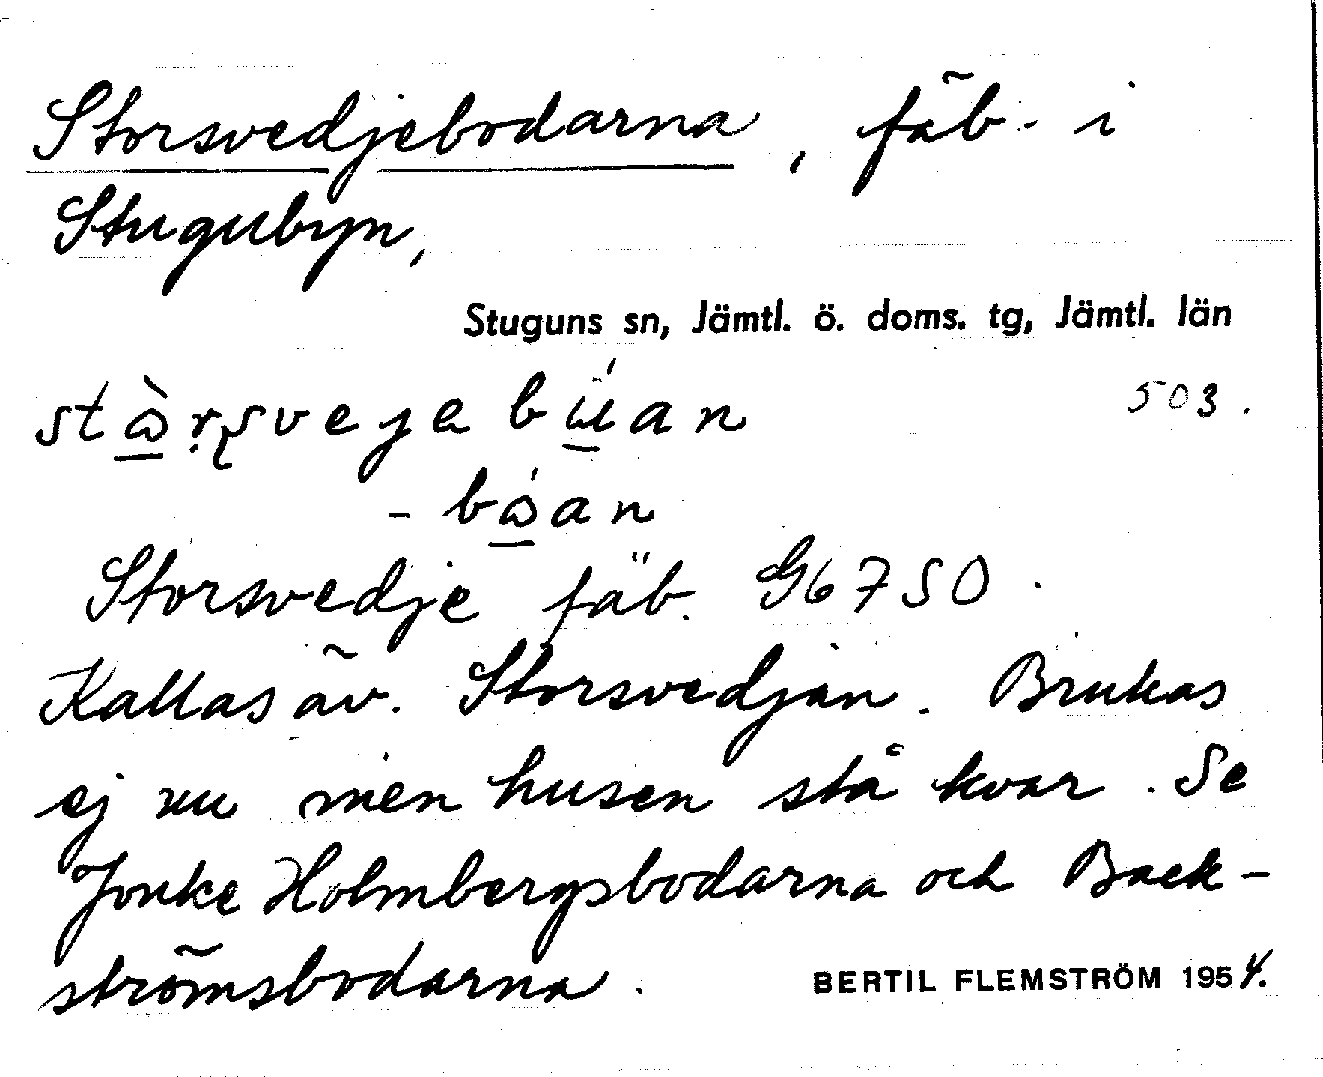 Storsvedjebodarna, fäb. i
Stugubyn,
Stuguns sn, Jämtl. ö. doms. tg, Jämtl. län
503.
-
Storsvedje fäb. G6750.
Kallas äv. Storsvedjan. Brukas
ej nu men husen stå kvar. Se
Jonke Holmbergsbodarna och Back-
strömsbodarna.
BERTIL FLEMSTRÖM 1954.